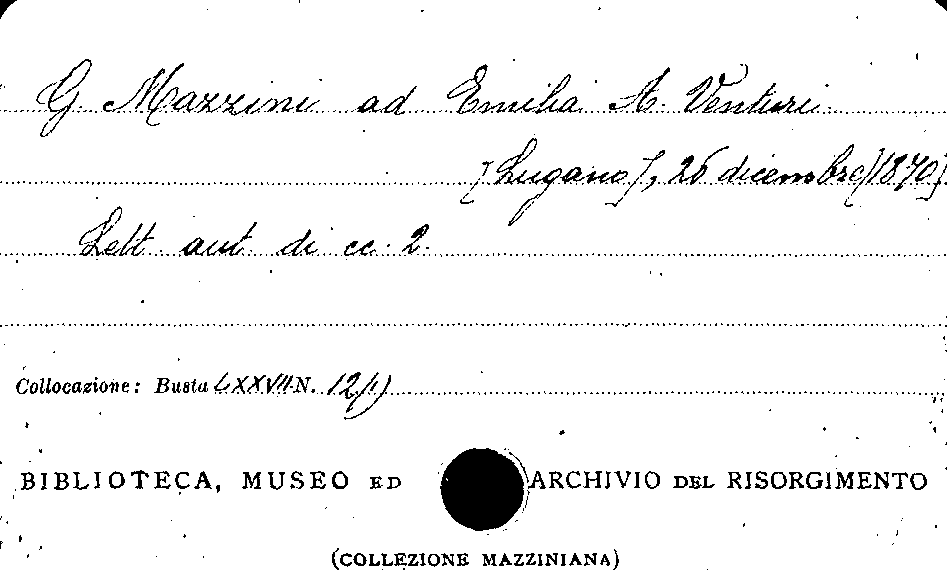 G. Mazzini ad Emilia A. Venturi
[Lugano], 26 dicembre [1870].
Lett. aut. di cc. 2.
Collocazione: Busta LXXVII N. 12/1)
BIBLIOTECA, MUSEO ED ARCHIVIO DEL RISORGIMENTO
(COLLEZIONE MAZZINIANA)